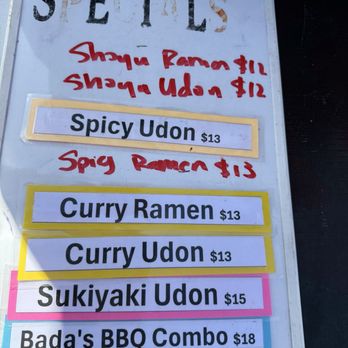 SPECIALS
Shoyu Ramen $12
Shoyu Udon $12
Spicy Udon $13
Spicy Ramen $13
Curry Ramen $13
Curry Udon $13
Sukiyaki Udon $15
Bada's BBQ Combo $18